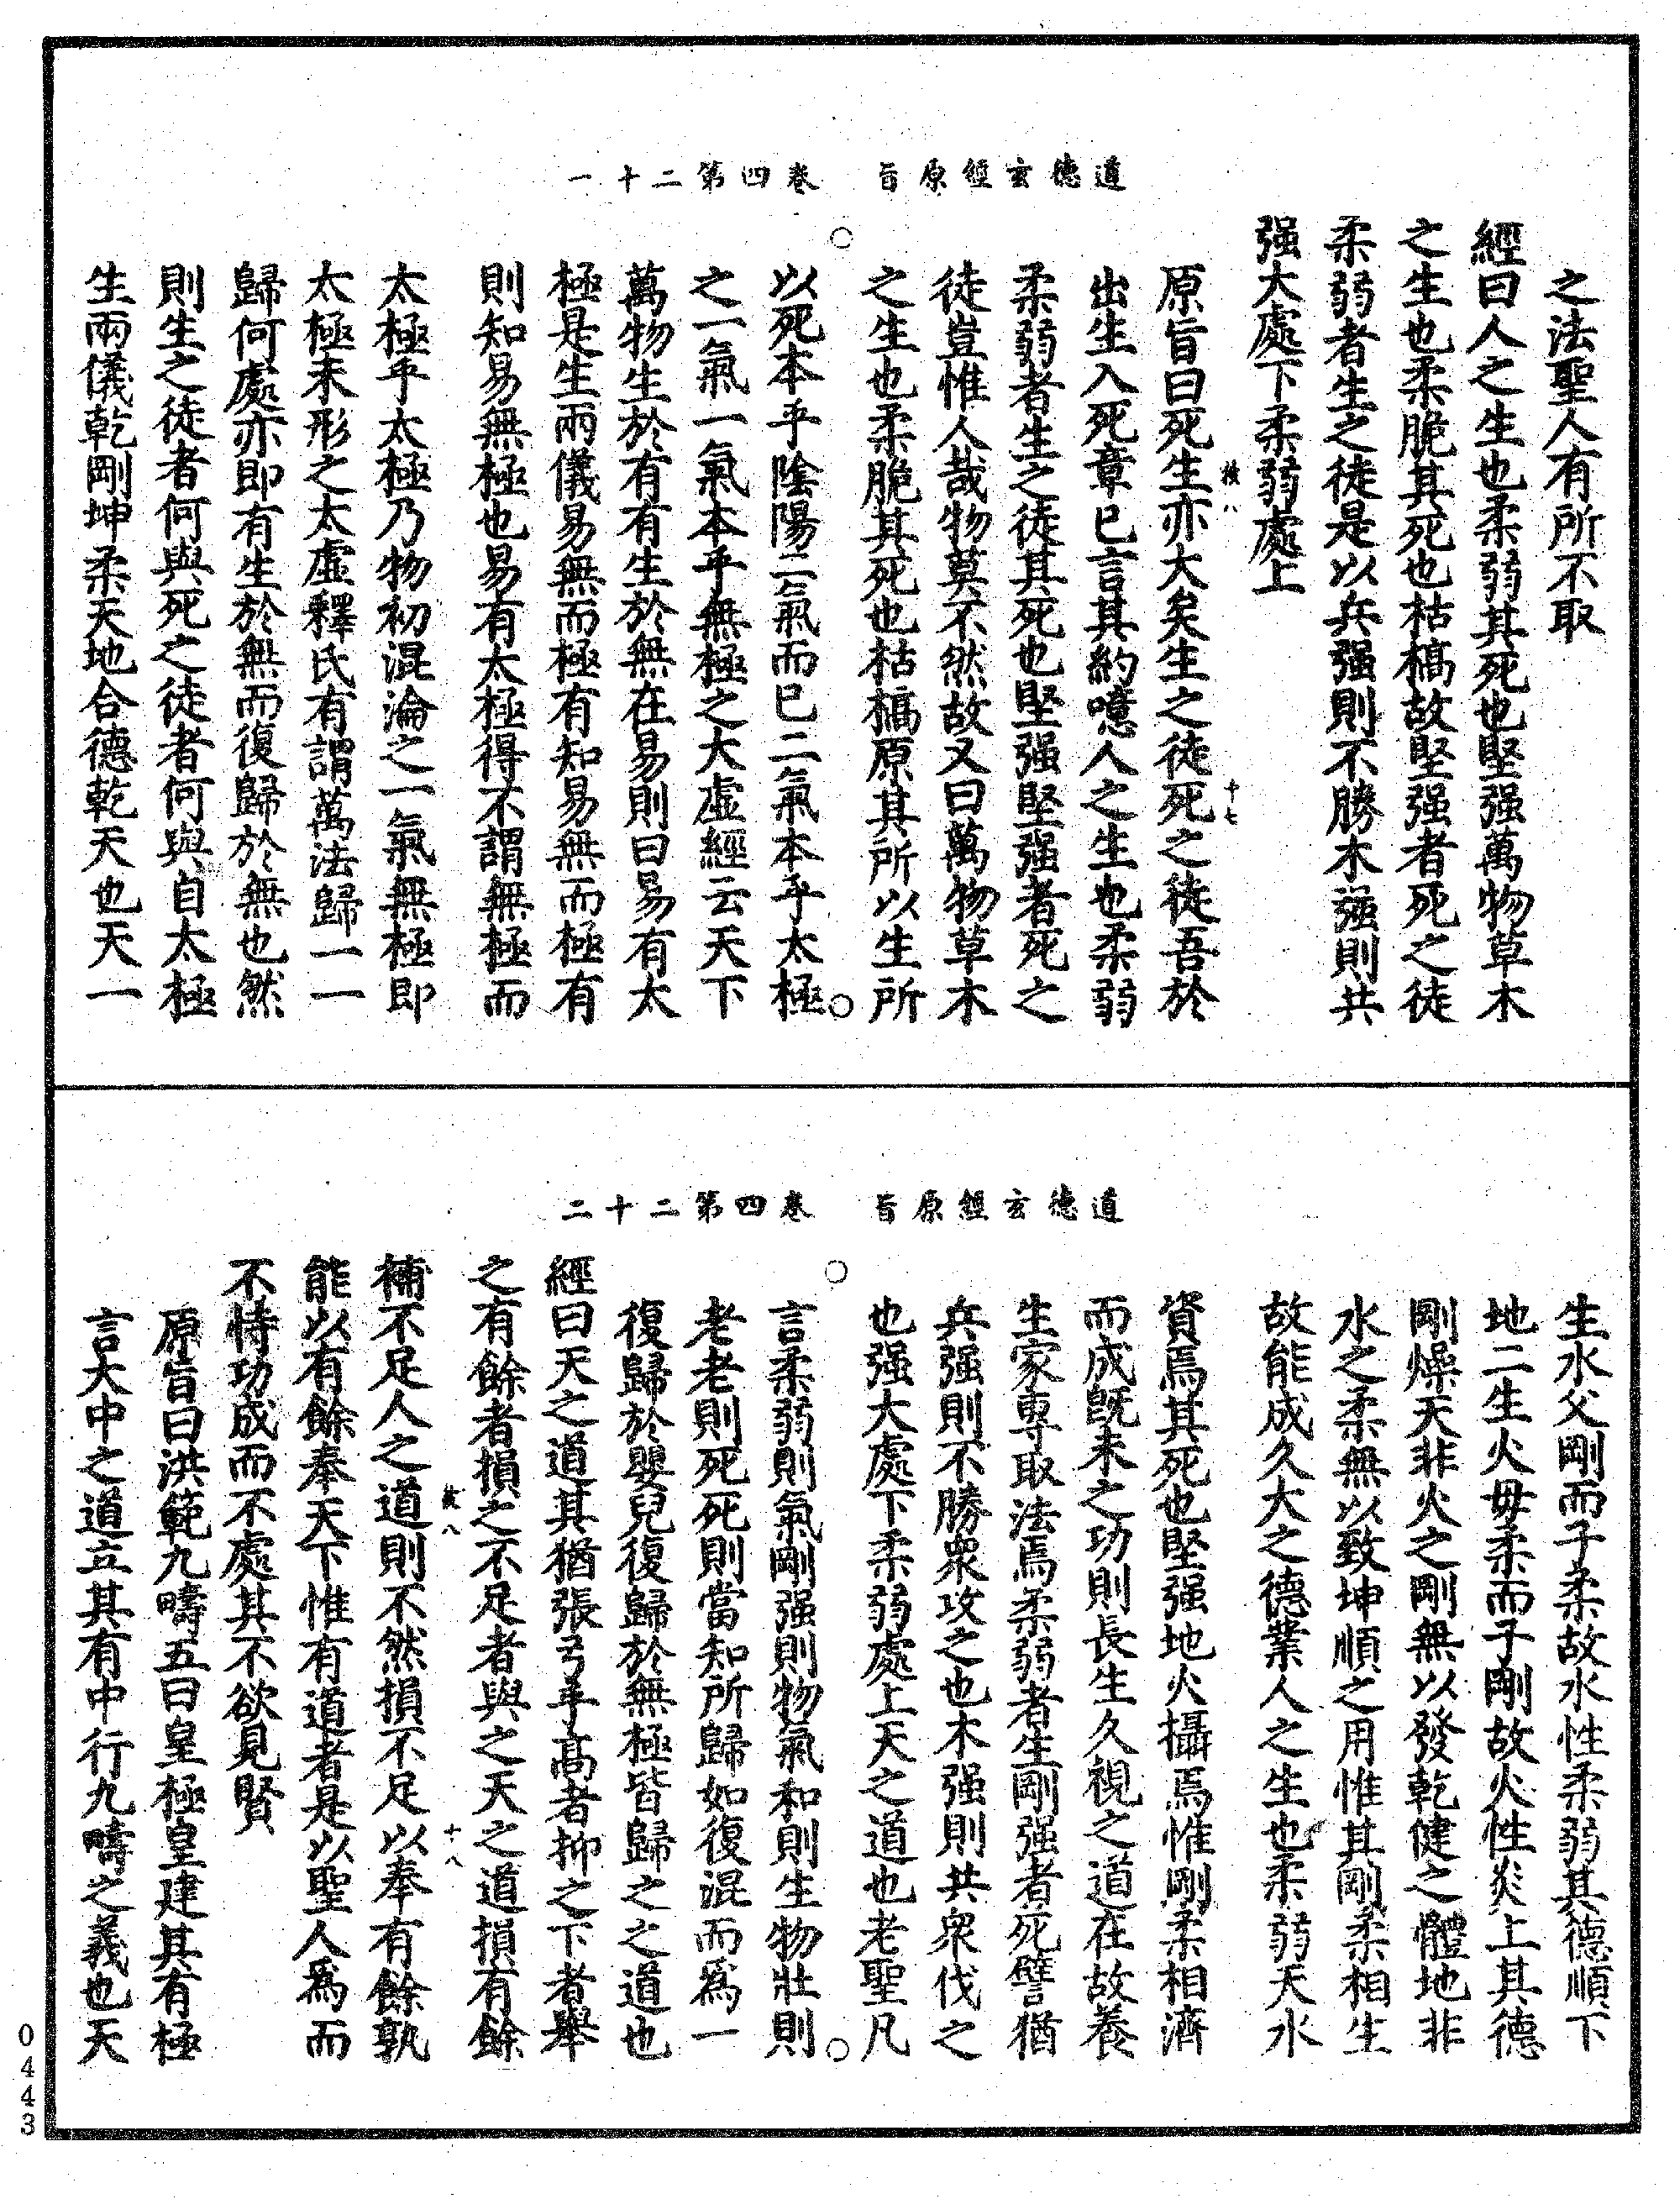 道德玄經原旨　卷四第二十一
之法聖人有所不取
經曰人之生也柔弱其死也堅强萬物草木
之生也柔脆其死也枯槁故堅强者死之徒
柔弱者生之徒是以兵强則不勝木强則共
强大處下柔弱處上
十七
原旨曰死生亦大矣生之徒死之徒吾於
出生入死章已言其約噫人之生也柔弱
柔弱者生之徒其死也堅强堅强者死之
徒豈惟人哉物莫不然故又曰萬物草木
之生也柔脆其死也枯槁原其所以生所
以死本乎陰陽二氣而已二氣本乎太極
之一氣一氣本乎無極之大虛經云天下
萬物生於有有生於無在易則曰易有太
極是生兩儀易無而極有知易無而極有
則知易無極也易有太極得不謂無極而
太極乎太極乃物初混淪之一氣無極即
太極未形之太虛釋氏有謂萬法歸一一
歸何處亦即有生於無而復歸於無也然
則生之徒者何與死之徒者何與自太極
生兩儀乾剛坤柔天地合德乾天也天一
道德玄經原旨　卷四第二十二
生水父剛而子柔故水性柔弱其德順下
地二生火毋柔而子剛故火性炎上其德
剛燥天非火之剛無以發乾健之體地非
水之柔無以致坤順之用惟其剛柔相生
故能成久大之德業人之生也柔弱天水
資焉其死也堅强地火攝焉惟剛柔相濟
而成旣未之功則長生久視之道在故養
生家専取法焉柔弱者生剛强者死譬猶
兵强則不勝衆攻之也木强則共衆伐之
也强大處下柔弱處上天之道也老聖凡
言柔弱則氣剛强則物氣和則生物壯則
老老則死死則當知所歸如復混而爲一
復歸於嬰兒復歸於無極皆歸之之道也
經曰天之道其猶張弓乎高者抑之下者舉
之有餘者損之不足者與之天之道損有餘
十八
補不足人之道則不然損不足以奉有餘孰
能以有餘奉天下惟有道者是以聖人爲而
不恃功成而不處其不欲見賢
原旨曰洪範九疇五曰皇極皇建其有極
言大中之道立其有中行九疇之義也天
0443